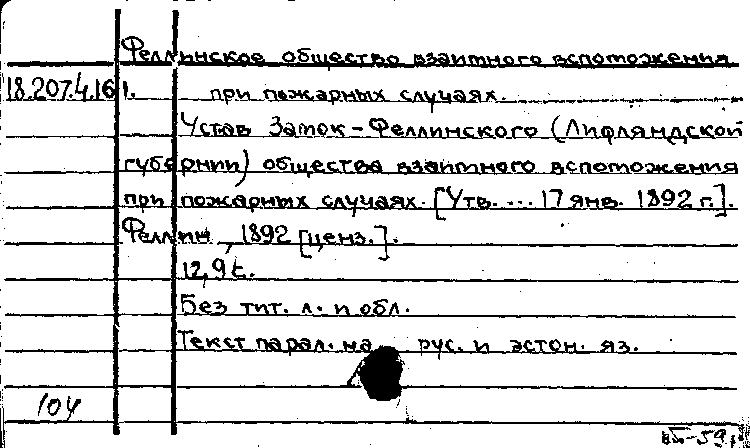 Феллинское общество взаимного вспоможения
18.207.4.161. при пожарных случаях.
Устав Замок-Феллинского (Лифляндской
губернии) общества взаимного вспоможения
при пожарных случаях. [Утв. ... 17 янв. 1892 г.].
Феллин, 1892 [ценз.].
12,9 t.
Без тит. л. и обл.
Текст парал. на рус. и эстон. яз.
104